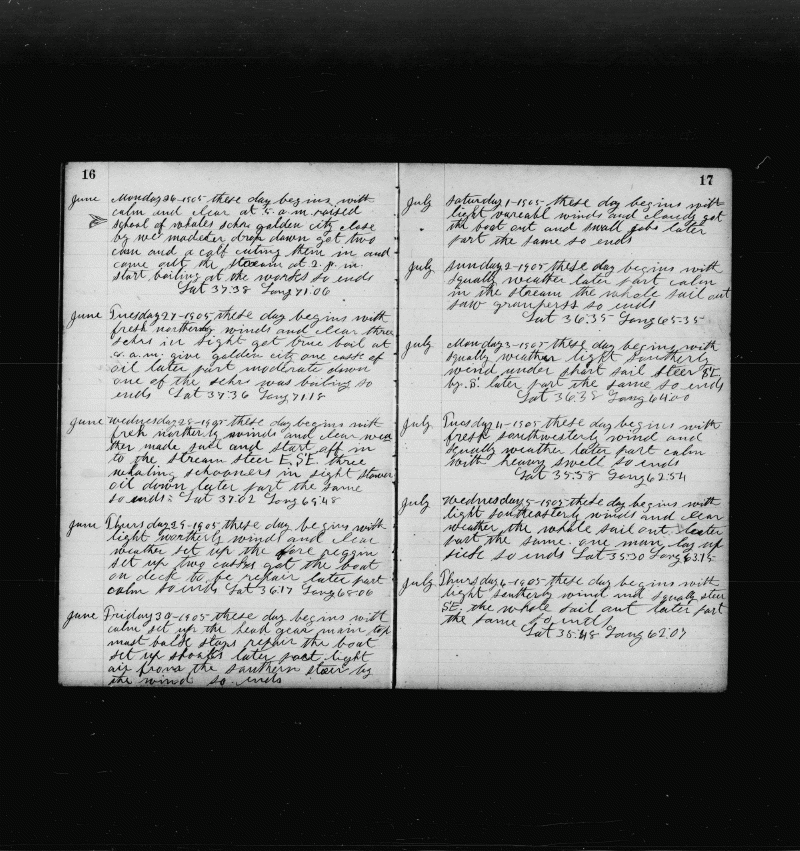 16
June Monday 26-1905 these day begins with
calm and clear at 5. a.m. raised
school of whales schr golden city close
by we madicker drop down got two
cam and a calf cuting them in and
came out the steam at 2. p. m.
start boiling at the works so ends
Lat 37.38 Long 71.06
June Tuesday 27-1905 these day begins with
fresh northerly winds and clear three
schrs in sight got true boil at
a.m. give golden city one cask of
oil later part moderate down
one of the schrs was boiling so
ends Lat 37.36 Long 71.18
June Wednesday 28-1905 these day begins with
fresh northerly winds and clear wea
ther made sail and start off in
to the stream steer E.S.E. three
whaling schooners in sight stower
oil down later part the same
so ends: Lat 37.02 Long 69.48
June Thursday 29-1905 these day begins with
light northerly winds and clear
weather set up the fore reggin
set up two casks got the boat
on deck to be repair later part
calm so ends Lat 36.17 Long 68.06
June Friday 30-1905 these day begins with
calm set up the head gear main top
mast back stays repair the boat
set up shooks later part light
air from the southern steer by
the wind so ends
17
July Saturday 1-1905 these day begins with
light vareabl winds and cloudy got
the boat out and small jobs later
part the same so ends
July Sunday 2-1905 these day begins with
squally weather later part calm
in the stream the whole sail out
saw gramperss so ends
Lat 36.35 Long 65.35
July Monday 3-1905 these day begins with
squally weather light southerly
wind under short sail steer S.E.
by. S. later part the same so ends
Lat 36.38 Long 64.00
July Tuesday 4-1905 these day begins with
fresh southwesterly wind and
squally weather later part calm
with heavy swell so ends
Lat 35.58 Long 62.54
July Wednesday 5-1905 these day begins with
light southeasterly winds and clear
weather the whole sail out later
part the same. one man lay up
sick so ends Lat 35.30 Long 63.15
July Thursday 6-1905 these day begins with
light southerly wind and squally steer
S.E. the whole sail out later part
the same so ends
Lat 35.48 Long 62.07